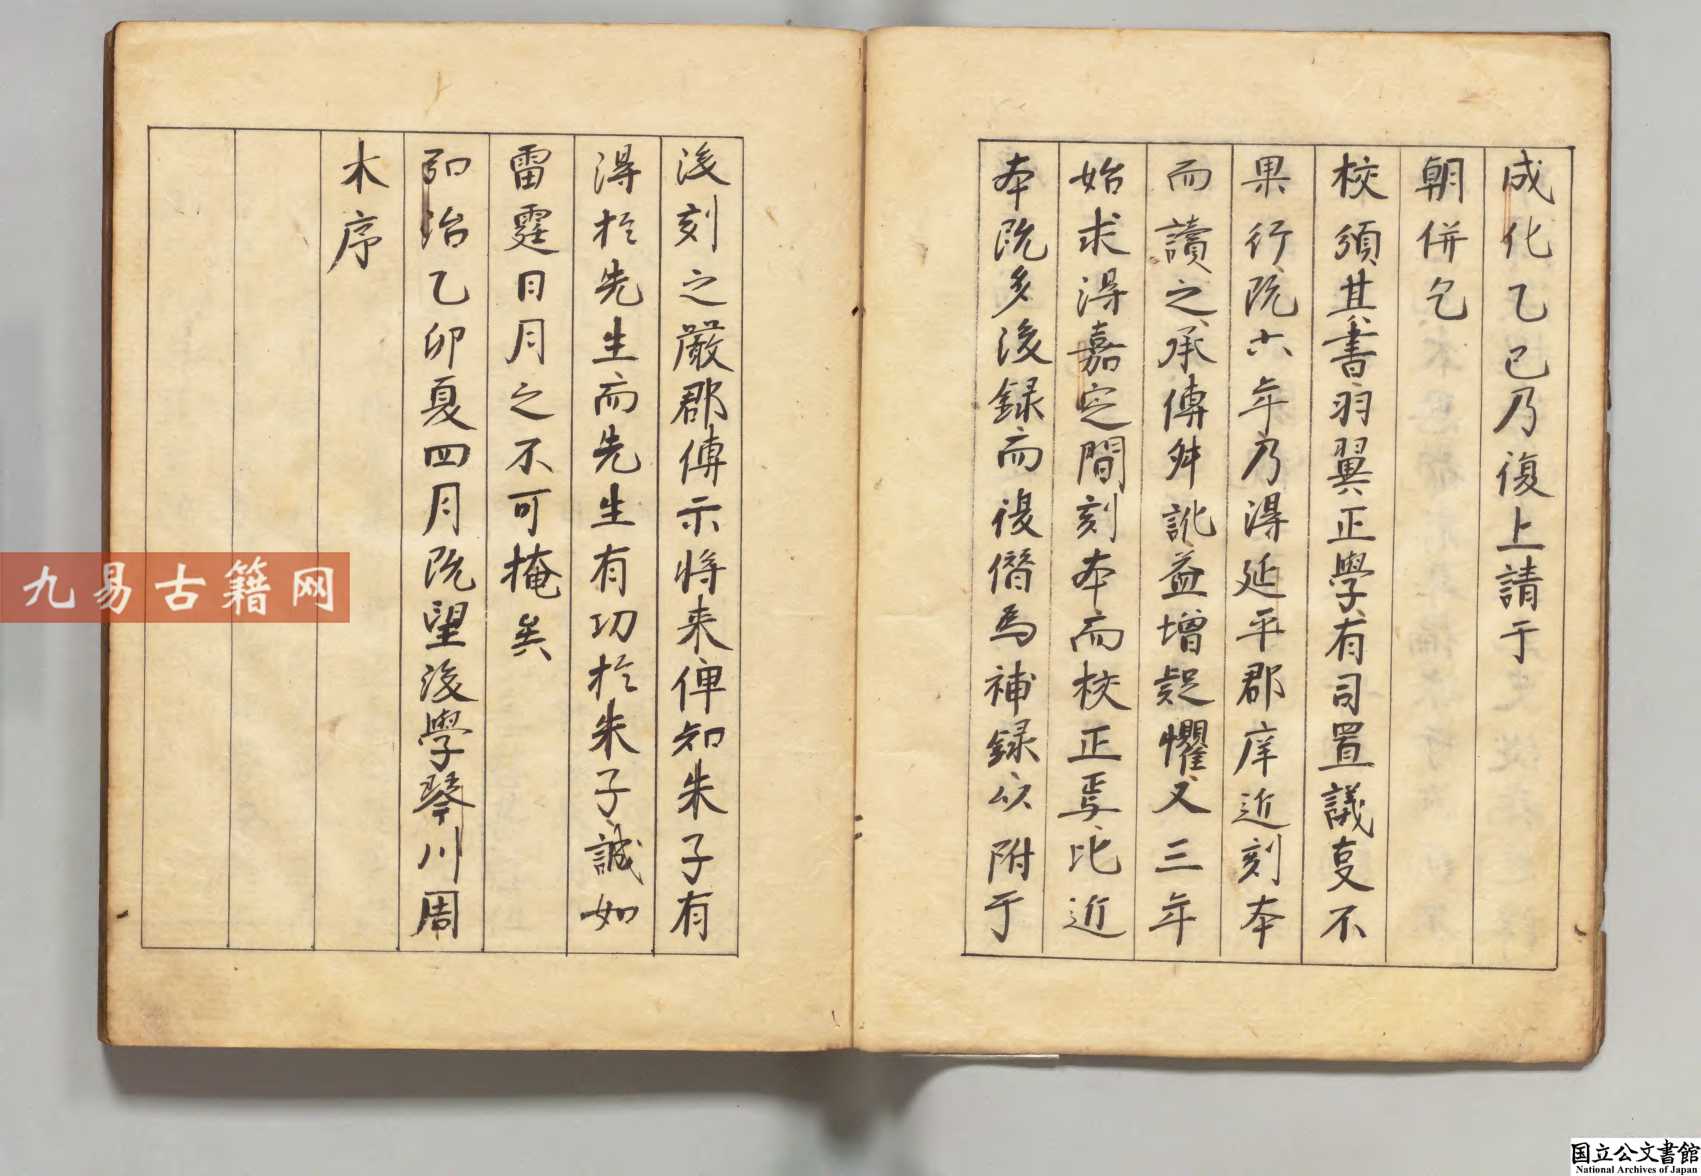 成化乙巳乃復上請于
朝併乞
校頒其書羽翼正學有司置議旻不
果行既六年乃得延平郡庠近刻本
而讀之承傳舛訛益增疑懼又三年
始求得嘉定間刻本而校正焉比近
本既多後録而復僭為補録以附于
後刻之嚴郡傳示將来俾知朱子有
得於先生而先生有功於朱子誠如
雷霆日月之不可掩矣
弘治乙卯夏四月既望後學琴川周
木序
九易古籍网
国立公文書館
National Archives of Japan